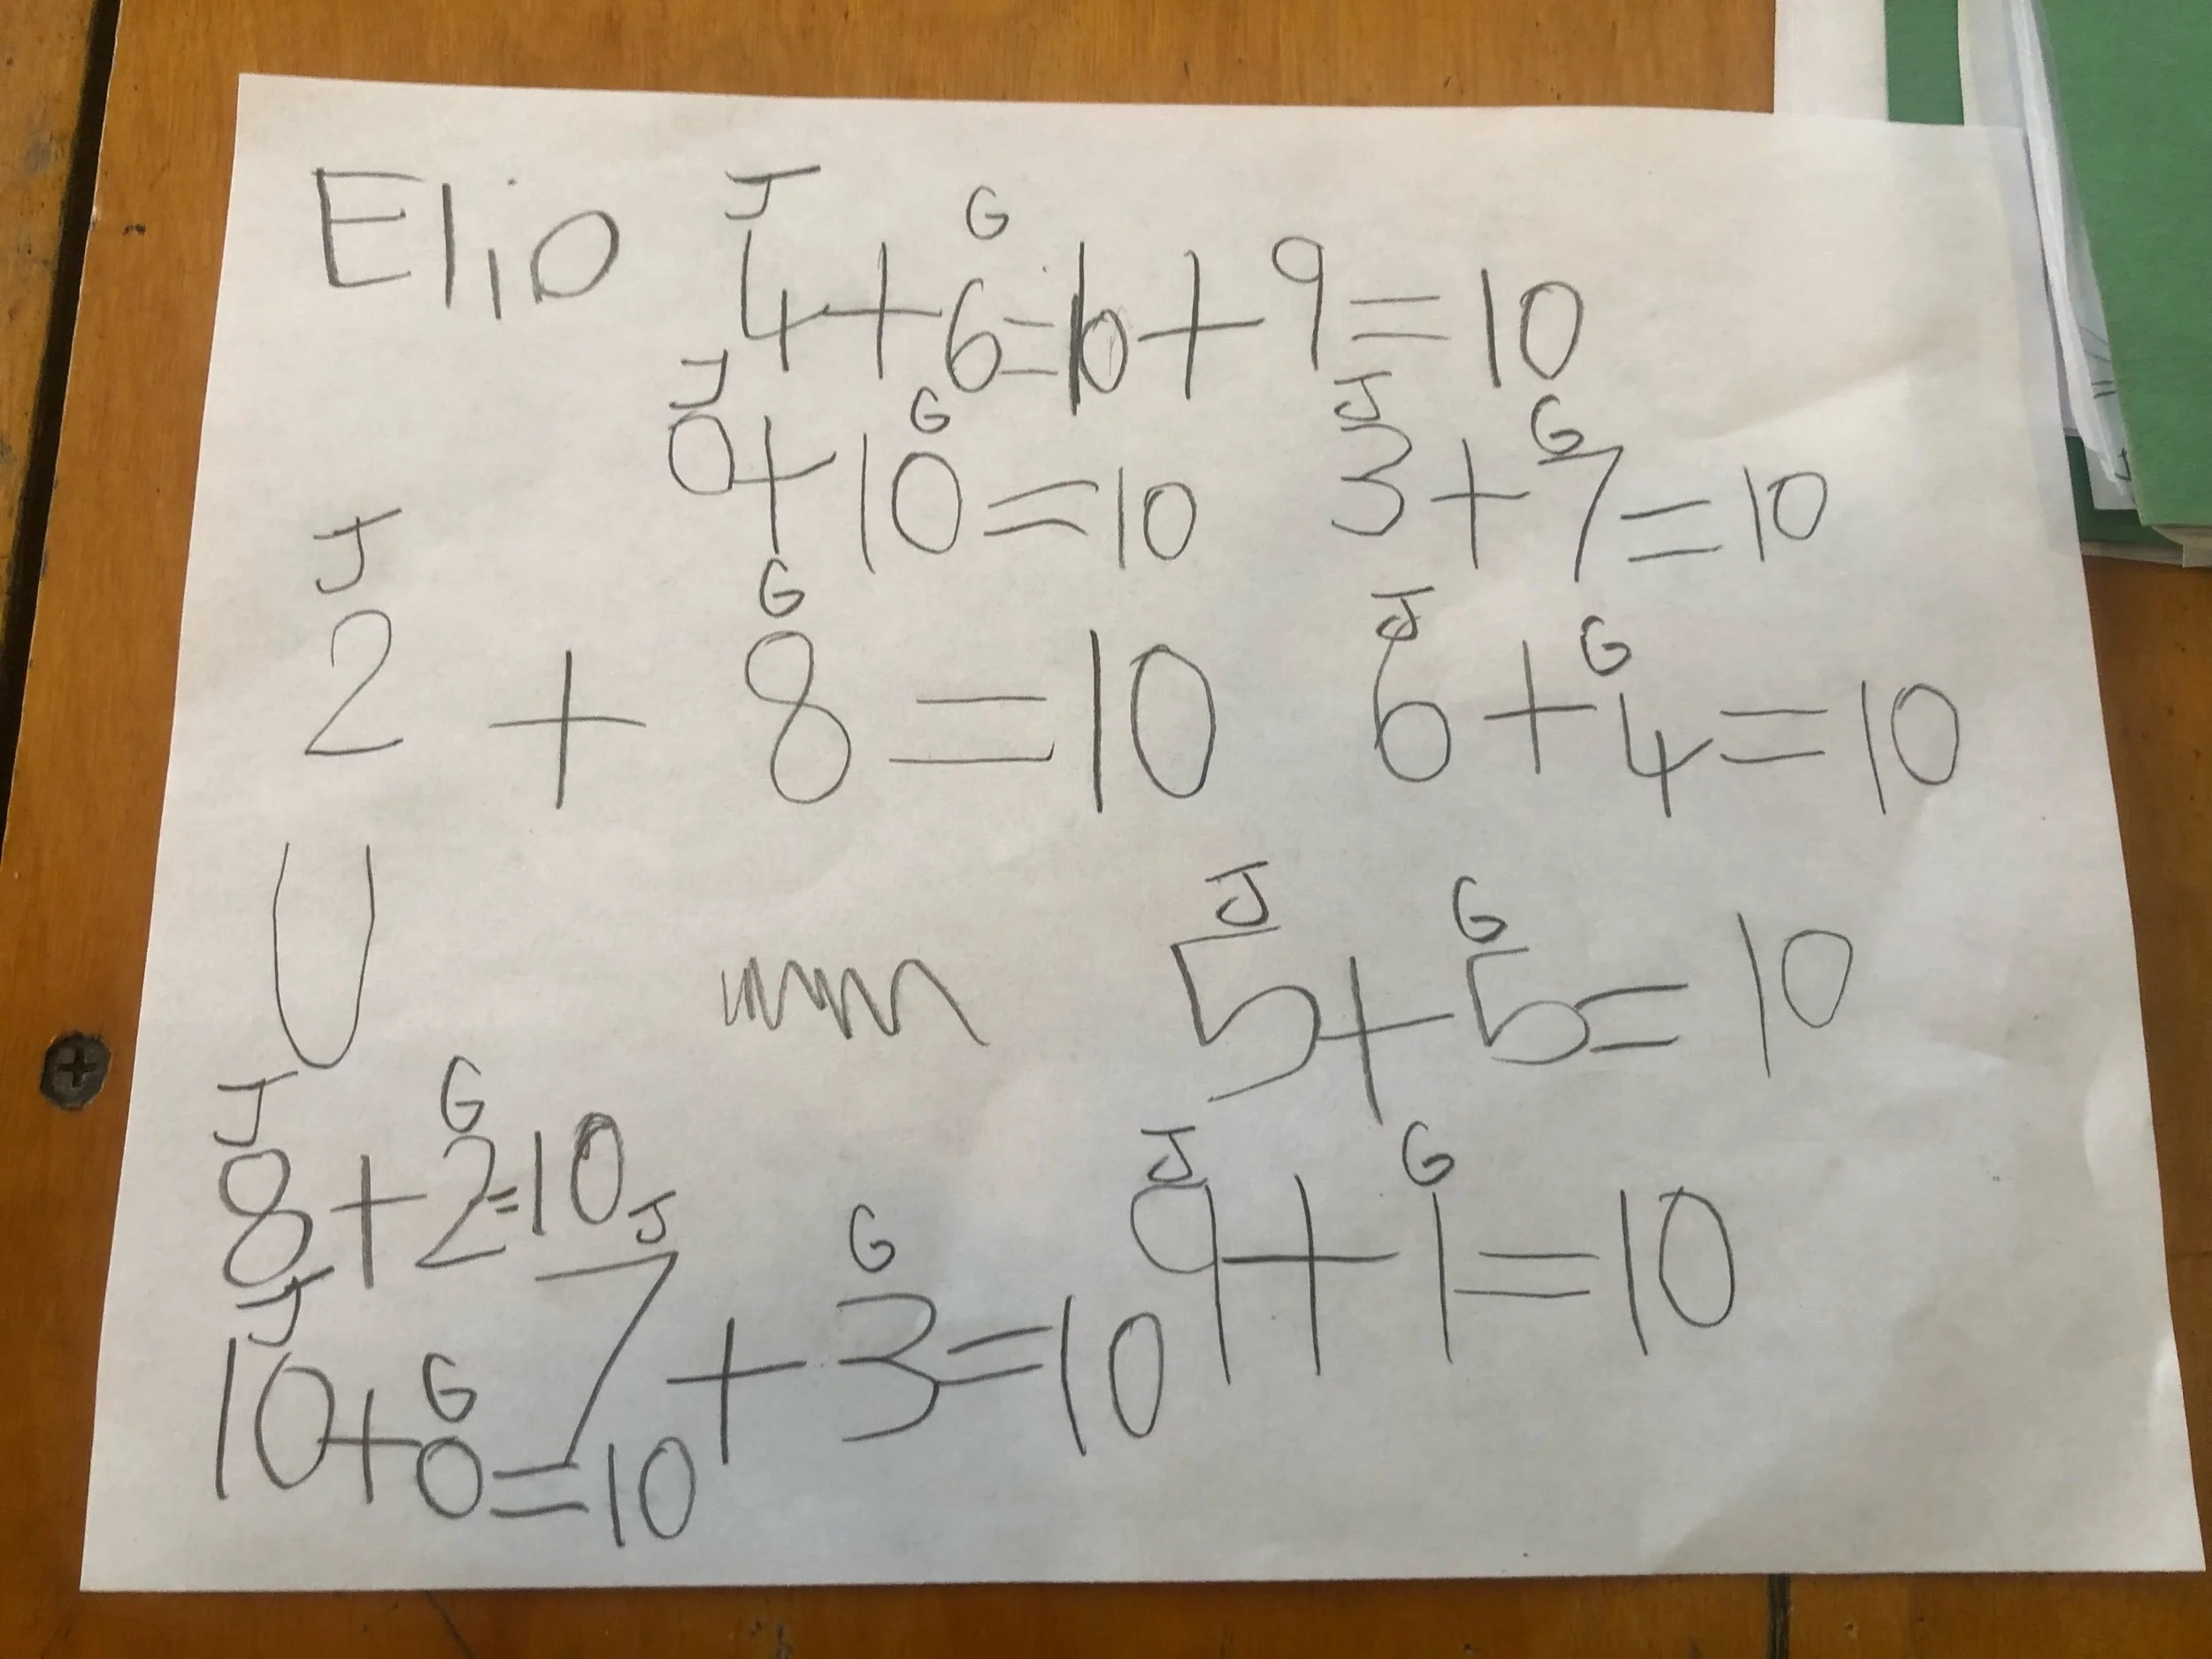 Elio
J G
4+6=10+9=10
J G J G
0+10=10 3+7=10
J G J G
2 + 8=10 6+4=10
U
J G
5+5=10
J G J G
8+2=10 9+1=10
J G
7+3=10
J G
10+0=10